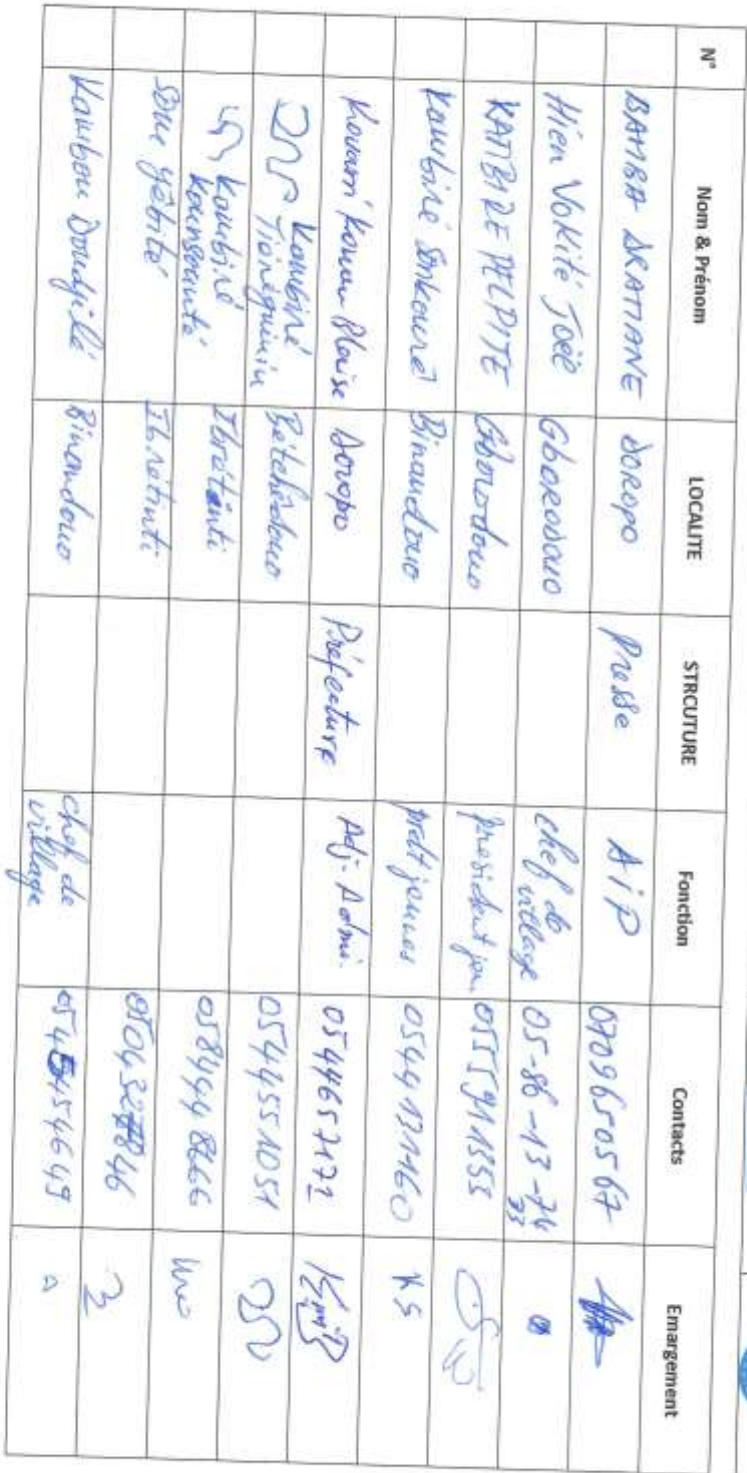 N° Nom & Prénom LOCALITE STRCUTURE Fonction Contacts Emargement
BAMBA DRAMANE DOROPO Presse AIP 0709650567
Hien Vokité Joël Gborodouo chef de village 05-86-13-74 33
KAMBIRE PELPITE Gborodouo President jeu 0555911353
Kambiré Sonkouré Binaudouo prdt jeunes 0544131160 KS
Kouamé Kouau Blaise Doropo Préfecture Adj. Admi. 0544657172
Kambiré Tiéréguiniu Bétchédouo 0544551051
Kambiré kounsounté Ibrétinti 0584448666
Some gbité Ibrétinti
Kambou Doudjilé Binondouo chef de village